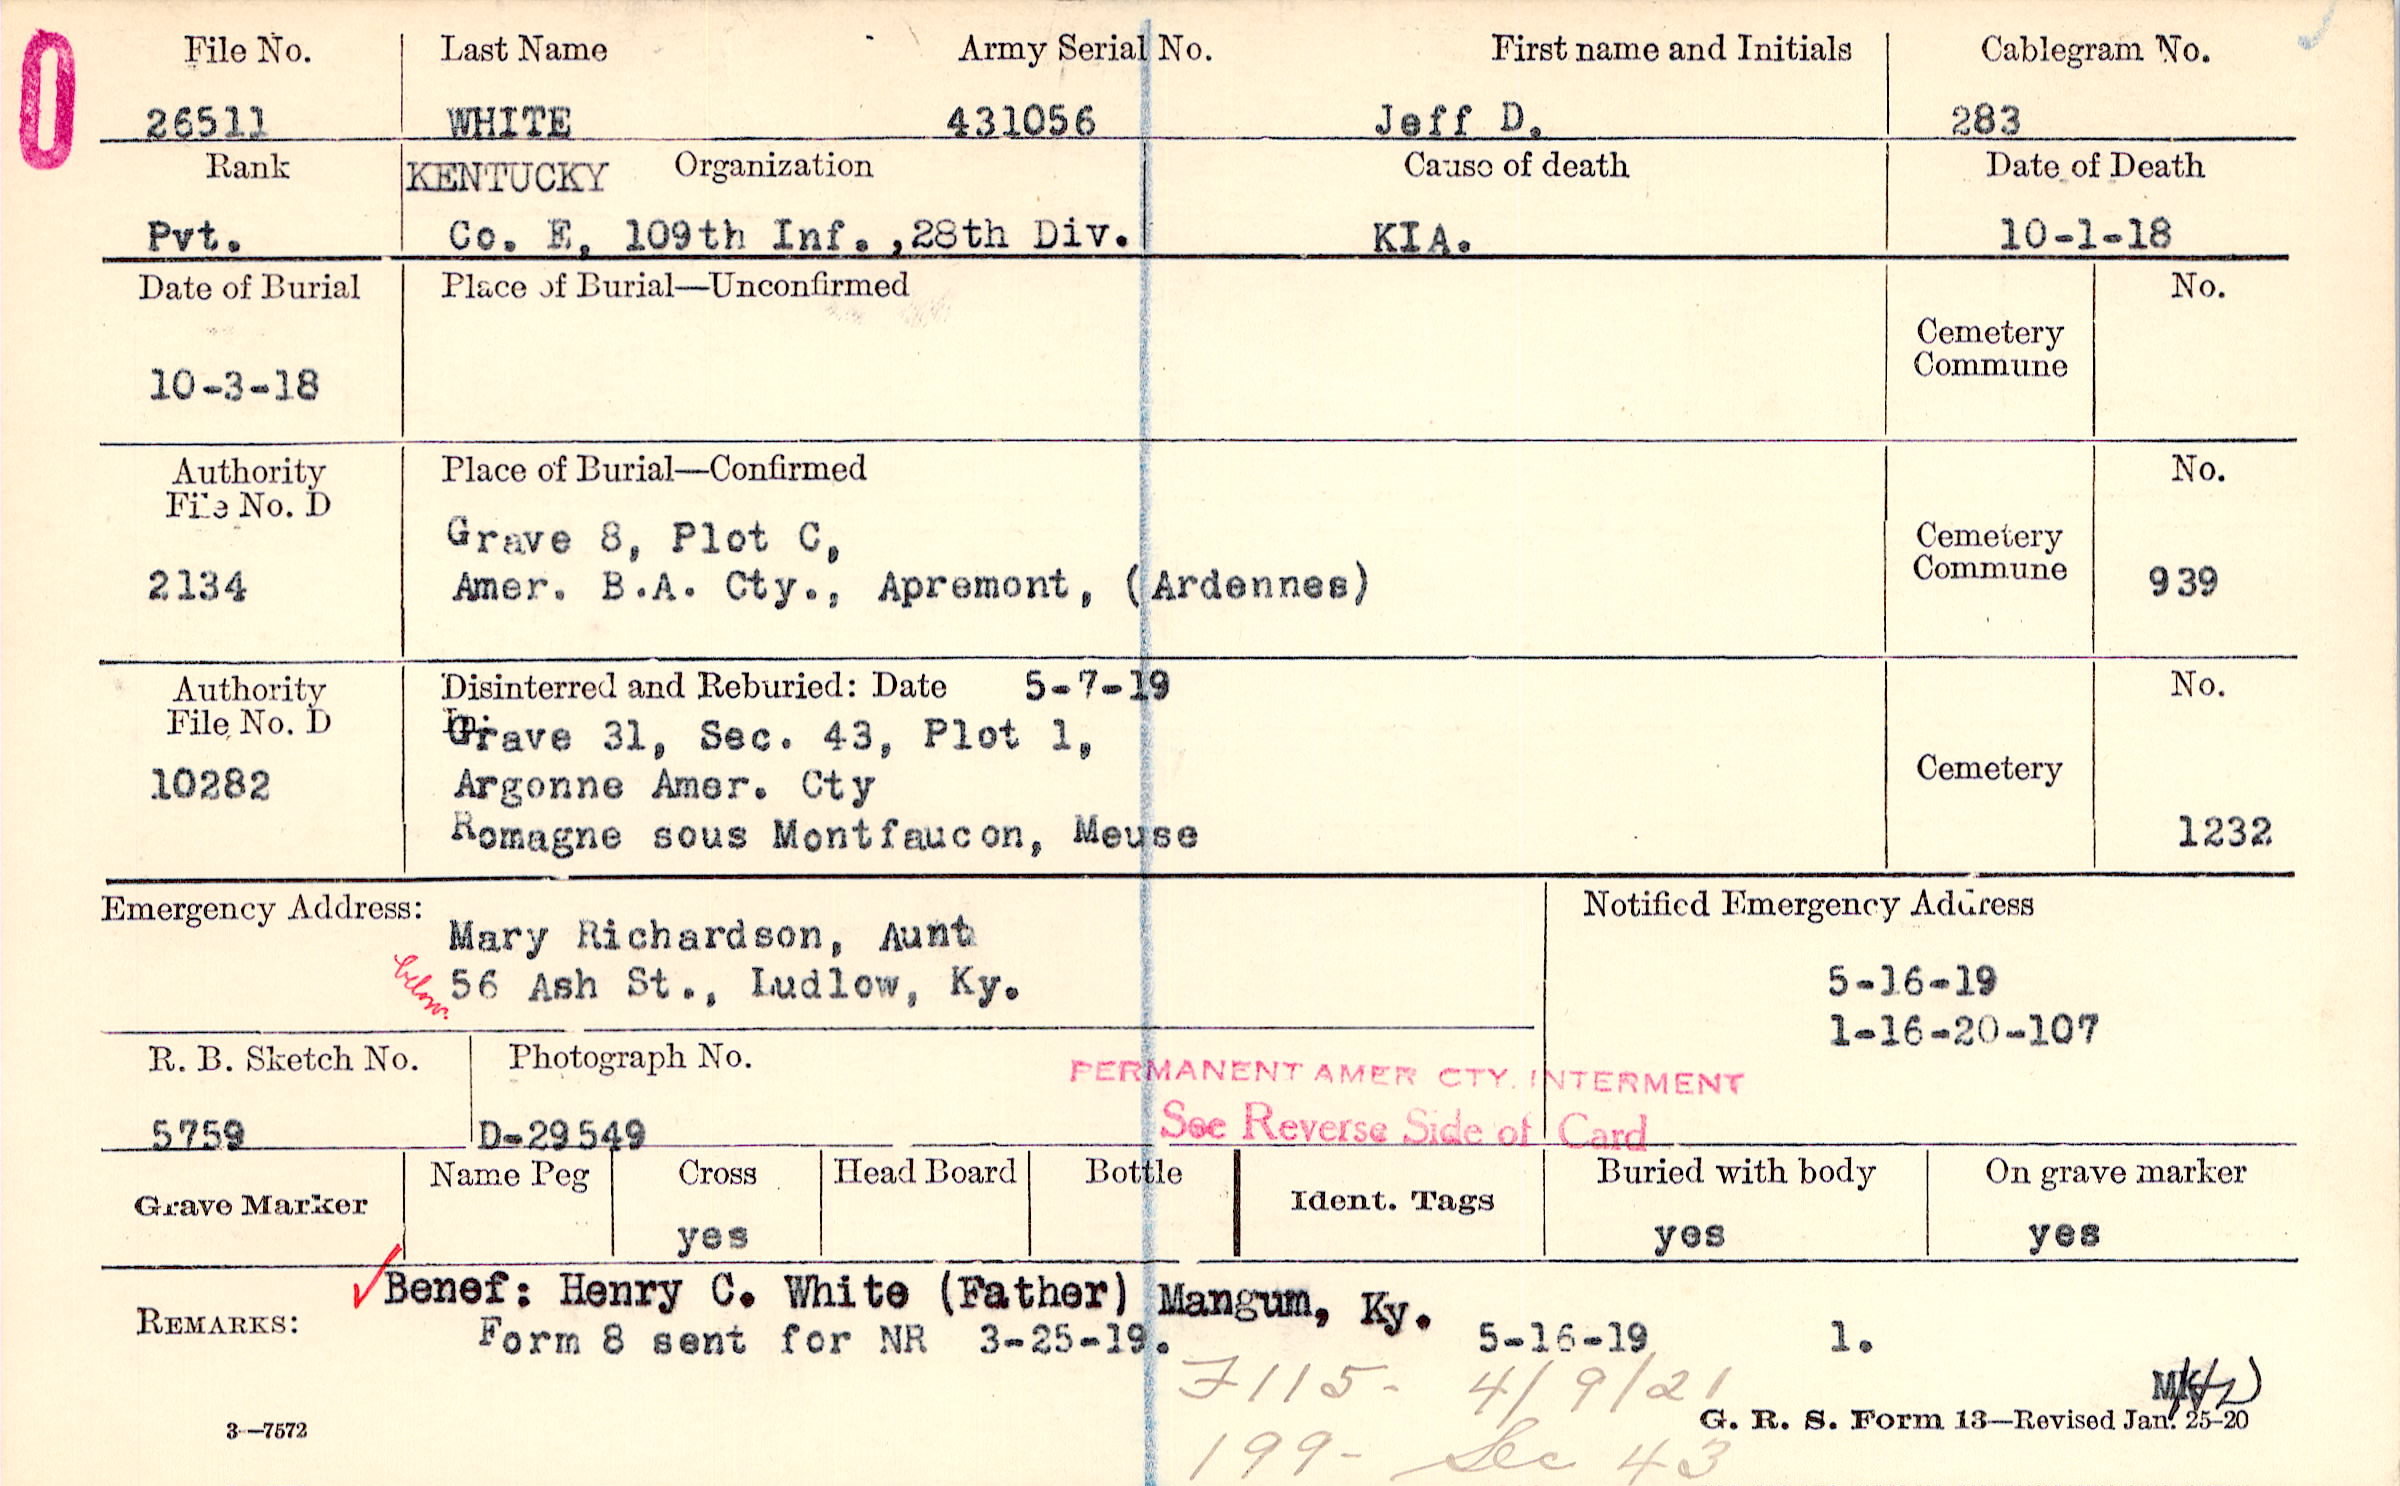 File No. Last Name Army Serial No. First name and Initials Cablegram No.
26511 WHITE 431056 Jeff D. 283
Rank KENTUCKY Organization Cause of death Date of Death
Pvt. Co. E, 109th Inf.,28th Div. KIA. 10-1-18
Date of Burial Place of Burial—Unconfirmed No.
Cemetery
Commune
10-3-18
Authority Place of Burial—Confirmed No.
File No. D
Grave 8, Plot C, Cemetery
2134 Amer. B.A. Cty., Apremont, (Ardennes) Commune 939
Authority Disinterred and Reburied: Date 5-7-19 No.
File No. D In:
Grave 31, Sec. 43, Plot 1,
10282 Argonne Amer. Cty Cemetery
Romagne sous Montfaucon, Meuse 1232
Emergency Address: Notified Emergency Address
Mary Richardson, Aunt
56 Ash St., Ludlow, Ky. 5-16-19
1-16-20-107
R. B. Sketch No. Photograph No.
PERMANENT AMER CTY. INTERMENT
5759 D-29549 See Reverse Side of Card
Grave Marker Name Peg Cross Head Board Bottle Ident. Tags Buried with body On grave marker
yes yes yes
Benef: Henry C. White (Father) Mangum, Ky.
REMARKS: Form 8 sent for NR 3-25-19. 5-16-19 1.
F115- 4/9/21
199- Sec 43
3—7572 G. R. S. Form 13—Revised Jan. 25-20